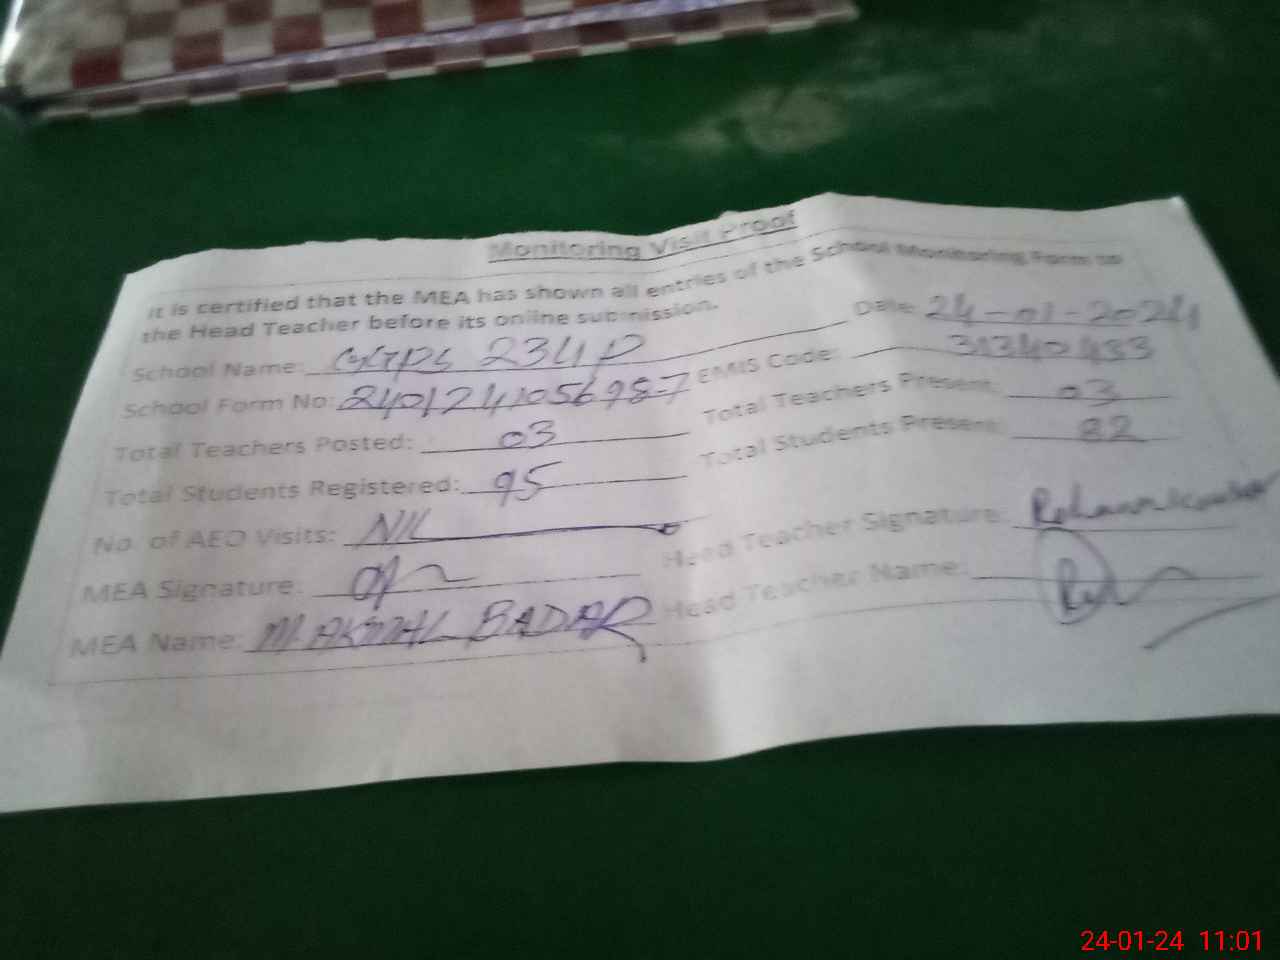 Monitoring Visit Proof
It is certified that the MEA has shown all entries of the School Monitoring Form to
the Head Teacher before its online submission.
Date: 24-01-2024
School Name: GGPS 234P
EMIS Code: 31340433
School Form No: 2401241056987
Total Teachers Present: 03
Total Teachers Posted: 03
Total Students Present: 82
Total Students Registered: 95
No. of AEO Visits: NIL
Head Teacher Signature:
MEA Signature:
Head Teacher Name:
MEA Name: M. AKMAL BADAR
24-01-24 11:01